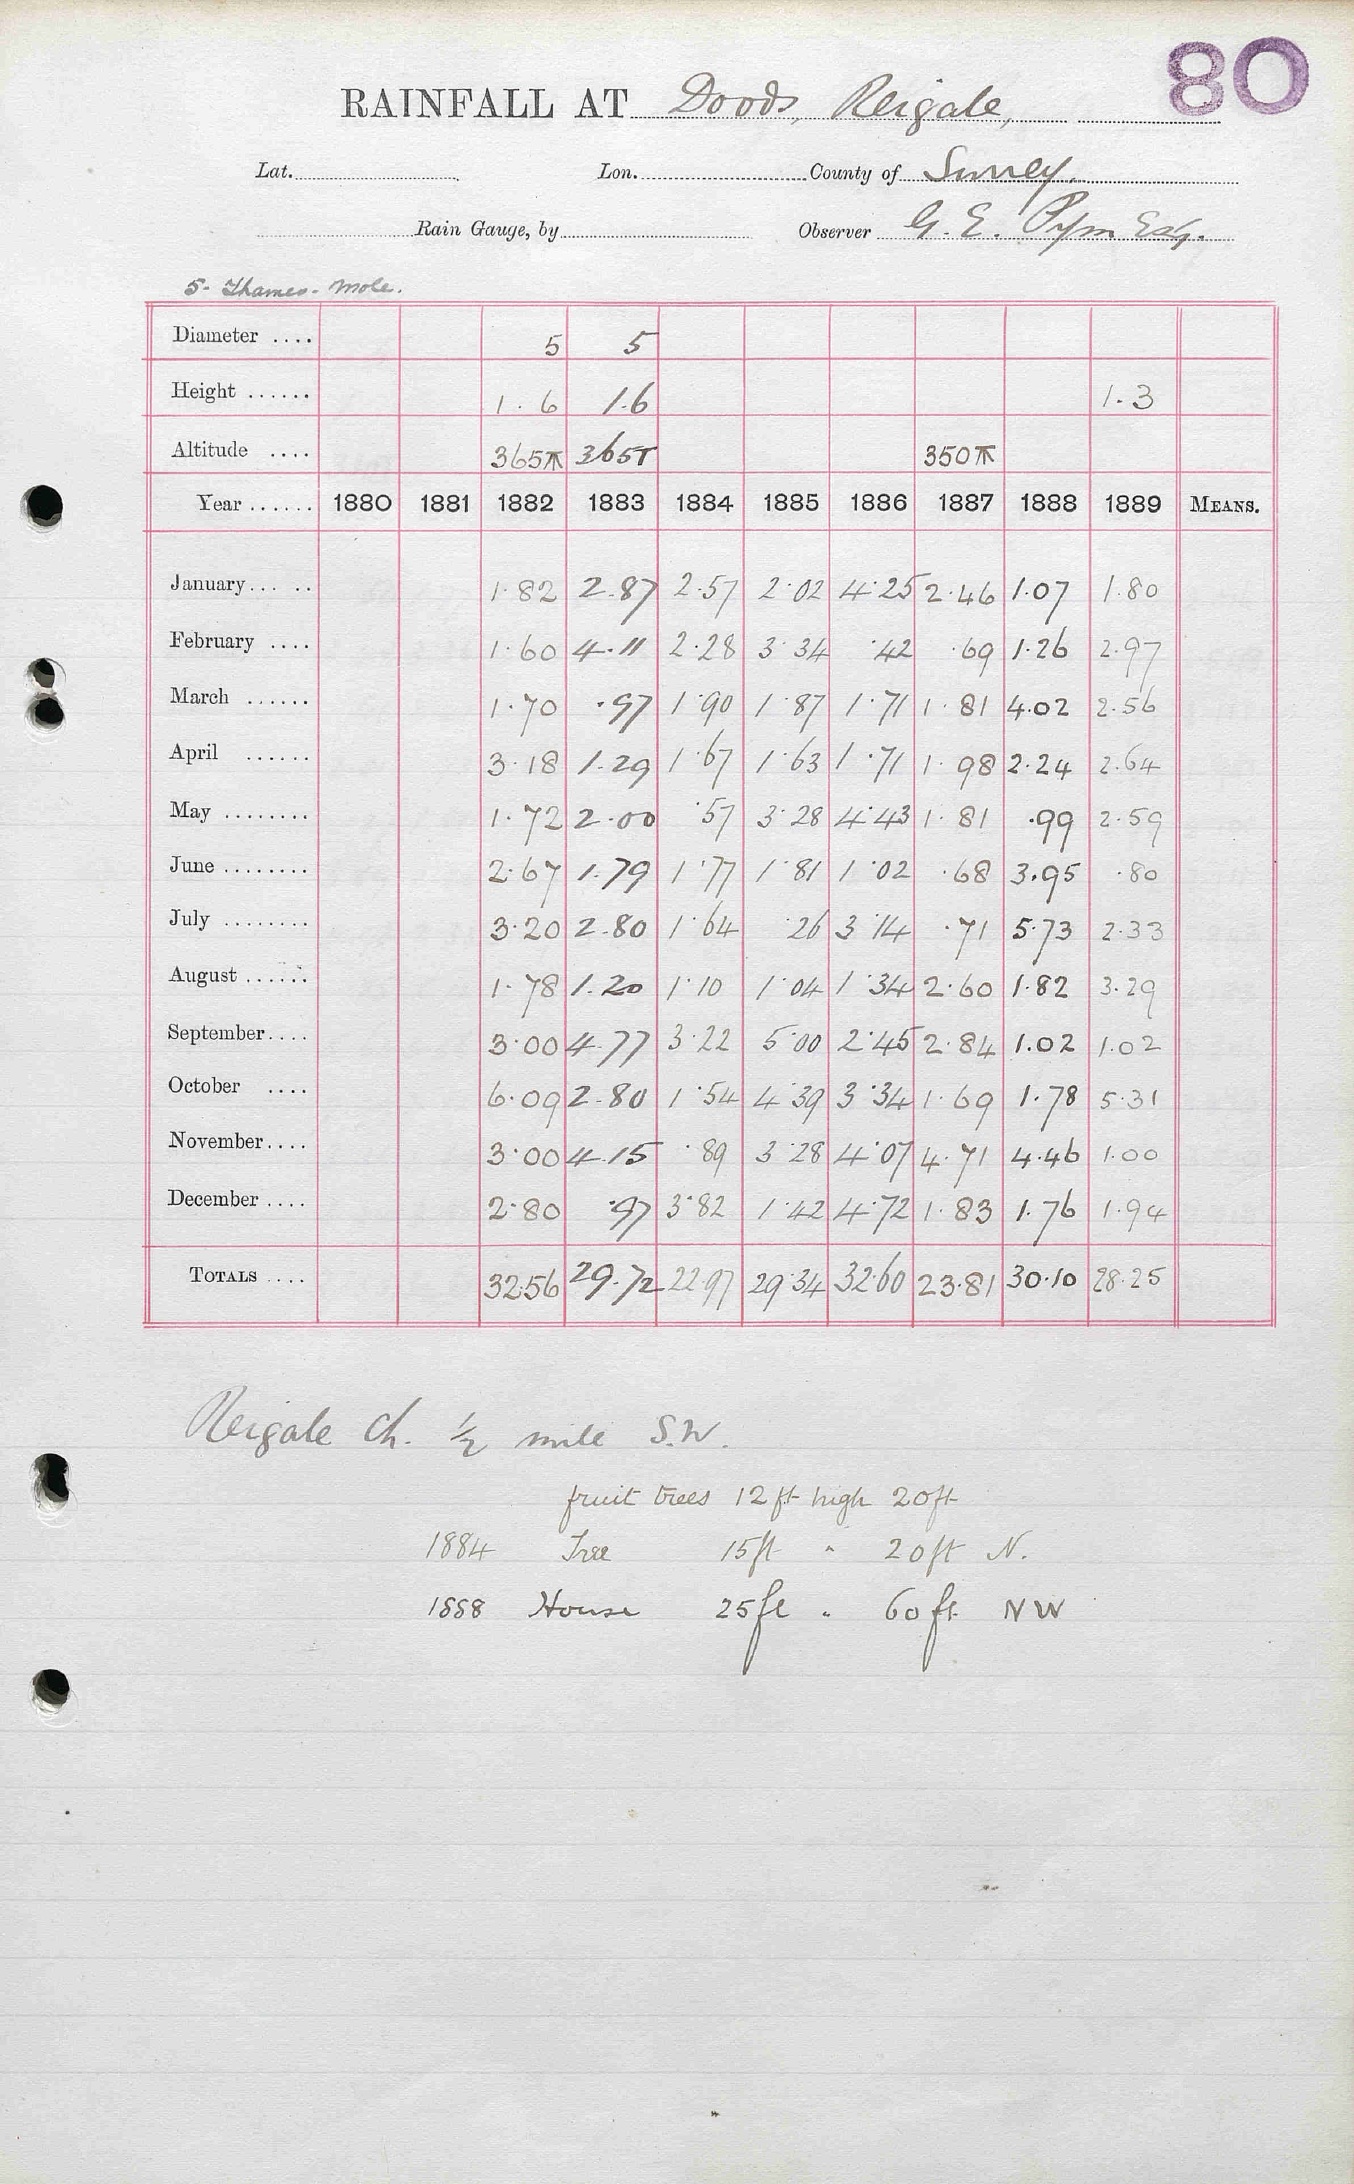 80
RAINFALL AT Doods, Reigate,
Lat. Lon. County of Surrey.
Rain Gauge, by Observer G. E. Pym Esq.
5- Thames - Mole.
Diameter .... 5 5
Height ...... 1.6 1.6 1.3
Altitude .... 365T 365T 350T
Year ...... 1880 1881 1882 1883 1884 1885 1886 1887 1888 1889 MEANS.
January... .. 1.82 2.87 2.57 2.02 4.25 2.46 1.07 1.80
February .... 1.60 4.11 2.28 3.34 .42 .69 1.26 2.97
March ...... 1.70 .97 1.90 1.87 1.71 1.81 4.02 2.56
April ...... 3.18 1.29 1.67 1.63 1.71 1.98 2.24 2.64
May ........ 1.72 2.00 .57 3.28 4.43 1.81 .99 2.59
June ........ 2.67 1.79 1.77 1.81 1.02 .68 3.95 .80
July ........ 3.20 2.80 1.64 .26 3.14 .71 5.73 2.33
August ...... 1.78 1.20 1.10 1.04 1.34 2.60 1.82 3.29
September.... 3.00 4.77 3.22 5.00 2.45 2.84 1.02 1.02
October .... 6.09 2.80 1.54 4.39 3.34 1.69 1.78 5.31
November.... 3.00 4.15 .89 3.28 4.07 4.71 4.46 1.00
December .... 2.80 .97 3.82 1.42 4.72 1.83 1.76 1.94
TOTALS .... 32.56 29.72 22.97 29.34 32.60 23.81 30.10 28.25
Reigate Ch. ½ mile S.W.
fruit trees 12 ft high 20ft
1884 Tree 15ft " 20ft N.
1888 House 25ft " 60ft NW